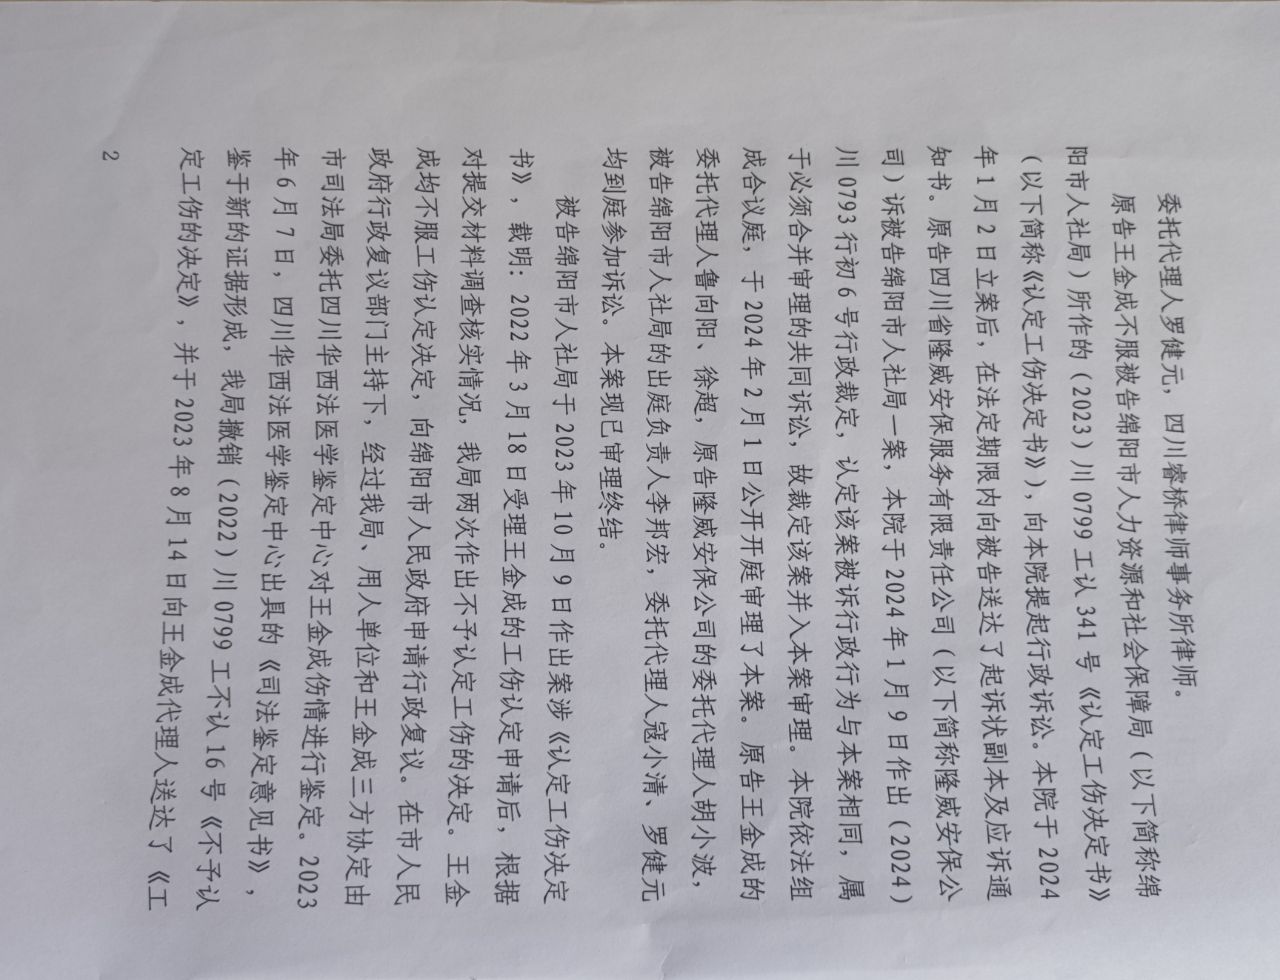 委托代理人罗健元，四川睿桥律师事务所律师。
原告王金成不服被告绵阳市人力资源和社会保障局（以下简称绵
阳市人社局）所作的（2023）川 0799 工认 341 号《认定工伤决定书》
（以下简称《认定工伤决定书》），向本院提起行政诉讼。本院于 2024
年 1 月 2 日立案后，在法定期限内向被告送达了起诉状副本及应诉通
知书。原告四川省隆威安保服务有限责任公司（以下简称隆威安保公
司）诉被告绵阳市人社局一案，本院于 2024 年 1 月 9 日作出（2024）
川 0793 行初 6 号行政裁定，认定该案被诉行政行为与本案相同，属
于必须合并审理的共同诉讼，故裁定该案并入本案审理。本院依法组
成合议庭，于 2024 年 2 月 1 日公开开庭审理了本案。原告王金成的
委托代理人鲁向阳、徐超，原告隆威安保公司的委托代理人胡小波，
被告绵阳市人社局的出庭负责人李邦宏，委托代理人寇小清、罗健元
均到庭参加诉讼。本案现已审理终结。
被告绵阳市人社局于 2023 年 10 月 9 日作出案涉《认定工伤决定
书》，载明：2022 年 3 月 18 日受理王金成的工伤认定申请后，根据
对提交材料调查核实情况，我局两次作出不予认定工伤的决定。王金
成均不服工伤认定决定，向绵阳市人民政府申请行政复议。在市人民
政府行政复议部门主持下，经过我局、用人单位和王金成三方协定由
市司法局委托四川华西法医学鉴定中心对王金成伤情进行鉴定。2023
年 6 月 7 日，四川华西法医学鉴定中心出具的《司法鉴定意见书》，
鉴于新的证据形成，我局撤销（2022）川 0799 工不认 16 号《不予认
定工伤的决定》，并于 2023 年 8 月 14 日向王金成代理人送达了《工
2